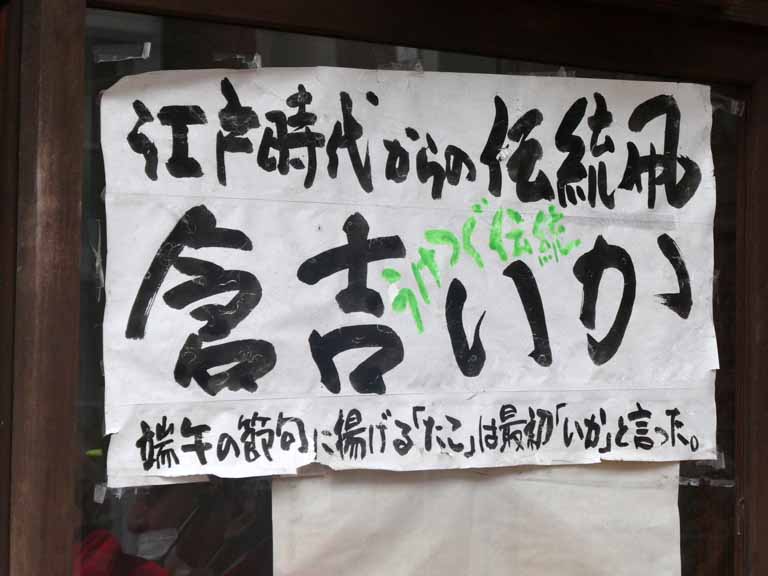 江戸時代からの伝統凧
うけつぐ伝統
倉吉いか
端午の節句に揚げる「たこ」は最初「いか」と言った。